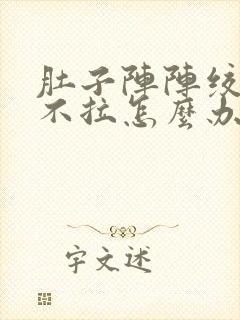 肚子陣陣絞
不拉怎麼办
字文述